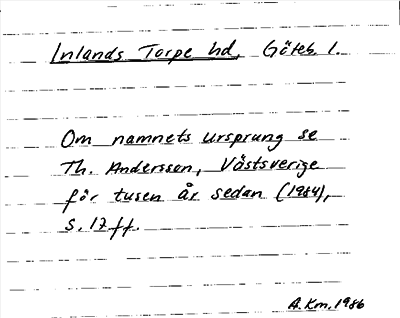 Inlands Torpe hd, Göteb. l.
Om namnets ursprung se
Th. Andersson, Västsverige
för tusen år sedan (1984),
s. 17 ff.
A.Km. 1986